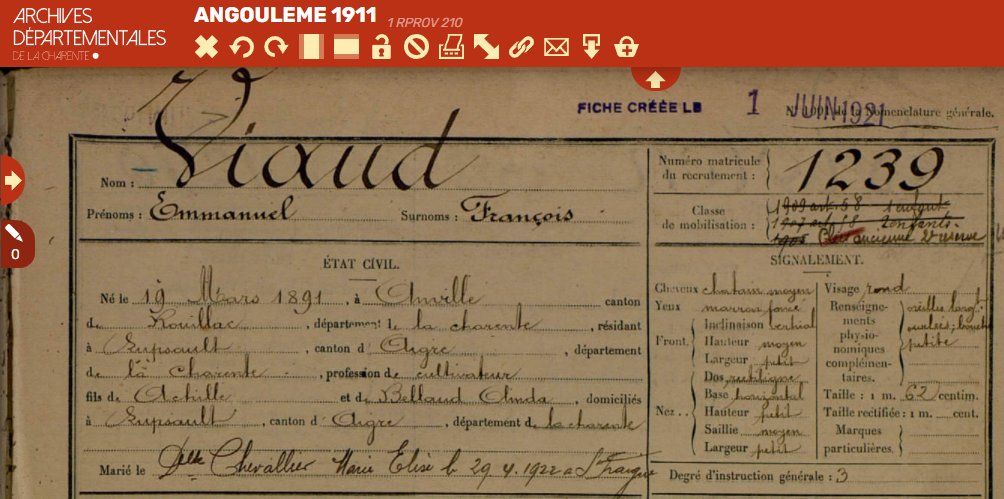 ARCHIVES
DÉPARTEMENTALES
DE LA CHARENTE
ANGOULEME 1911
1 RPROV 210
FICHE CRÉÉE LE 1 JUIN 1921
Nomenclature générale.
Nom : Viaud
Prénoms : Emmanuel Surnoms : François
Numéro matricule
du recrutement : 1239
Classe
de mobilisation :
1909 art. 58 1 enfant
1907 art 58 2 enfants
1905 ancienne 2e réserve
0
ÉTAT CIVIL.
Né le 19 Mars 1891, à Anville canton
de Rouillac, département de la charente, résidant
à Lupsault, canton d'Aigre, département
de la Charente, profession de cultivateur
fils de Achille et de Bellaud Alinda, domiciliés
à Lupsault, canton d'Aigre, département de la charente
Marié le Delle Chevallier Marie Elise le 29.4.1922 a St Fraigne
SIGNALEMENT.
Cheveux chatain moyen
Yeux marron foncé
Front. Inclinaison vertical
Hauteur moyen
Largeur petit
Nez.. Dos rectiligne
Base horizontal
Hauteur petit
Saillie moyen
Largeur petit
Visage rond
Renseignements
physionomiques
complémentaires.
oreilles
bouche
petite
Taille : 1 m. 62 centim.
Taille rectifiée : 1 m. cent.
Marques
particulières.
Degré d'instruction générale : 3